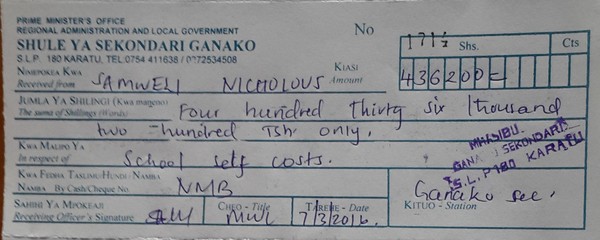 PRIME MINISTER'S OFFICE
REGIONAL ADMINISTRATION AND LOCAL GOVERNMENT
SHULE YA SEKONDARI GANAKO
S.L.P. 180 KARATU, TEL.0784 411638 / 0272534508
No
1712
Shs.
Cts
NIMEPOKEA KWA
Received from
SAMWELI NICHOLOUS
KIASI
Amount
436200=
JUMLA YA SHILINGI (Kwa maneno)
The sums of Shillings (Words)
Four hundred thirty six thousand
two hundred Tsh only.
KWA MALIPO YA
In respect of
School self costs.
KWA FEDHA TASLIMU/HUNDI / NAMBA
NAMBA By Cash/Cheque No.
NMB
MHASIBU
GANA SEKONDARI
S.L.P 180 KARATU
Ganako sec.
KITUO - Station
SAHIHI YA MPOKEAJI
Receiving Officer's Signature
CHEO - Title
MWL
TAREHE - Date
7/3/2016